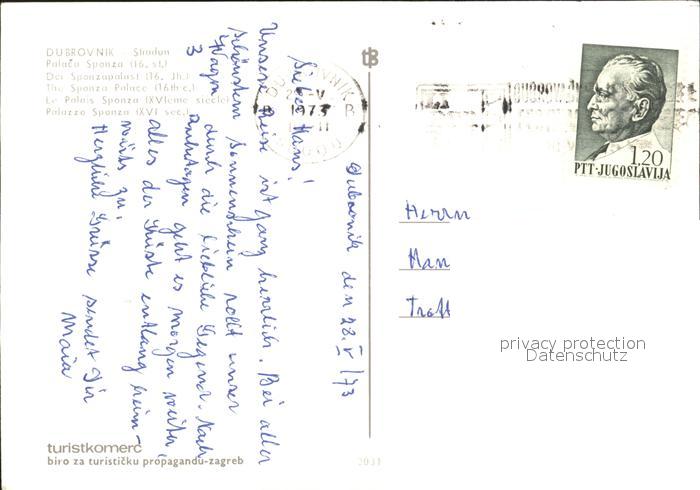 DUBROVNIK - Stradun
Palača Sponza (16. st.)
Der Sponzapalast (16. Jh.)
The Sponza Palace (16th c.)
Le Palais Sponza (XVIeme siecle)
Palazzo Sponza (XVI sec.)
Dubrovnik den 28. V /73
Lieber Hans!
Unsere Reise ist ganz herrlich. Bei aller
schönstem Sonnenschein rollt unser
Wagen durch die liebliche Gegend. Nach
3 Ruhetagen geht es morgen weiter,
alles der Küste entlang heim-
wärts zu.
Herzliche Grüsse sendet Dir
Maia
tB
DUBROVNIK
1973
1.20
PTT-JUGOSLAVIJA
Herrn
Han
Trott
privacy protection
Datenschutz
turistkomerc
biro za turističku propagandu-zagreb
2031